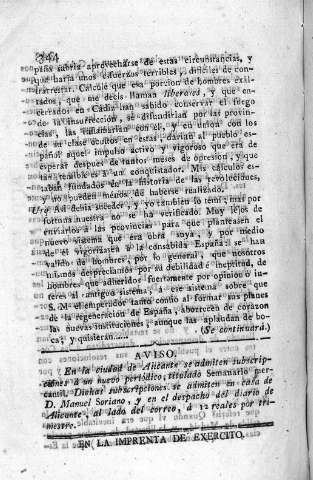 344
paña sabria aprovecharse de estas circunstancias, y
que haria unos esfuerzos terribles, dificiles de con-
trarrestar. Calculé que esa porcion de hombres exâl-
tados, que me decis llaman liberales, y que en-
cerrados en Cádiz han sabido conservar el fuego
de la insurreccion, se difundirian por las provin-
cias, las inflamarian con él, y en union con los
de su clase ocultos en estas, darian al pueblo es-
pañol aquel impulso activo y vigoroso que era de
esperar despues de tantos meses de opresion, y que
tan temible es á un conquistador. Mis cálculos es-
taban fundados en la historia de las revoluciones,
y no pueden ménos de haberse realizado.
Urq. Así debia suceder, y yo tambien lo temí; mas por
fortuna nuestra no se ha verificado. Muy léjos de
enviarlos á las provincias para que planteasen el
nuevo sistema que era obra suya, y por medio
de él vigorizasen á la consabida España, se han
valido de hombres, por lo general, que nosotros
mismos despreciamos por su debilidad é ineptitud, de
hombres que adheridos fuertemente por opinion ó in-
teres al antiguo sistema, ó ese sistema sobre que
S. M. el emperador tanto confió al formar sus planes
de la regeneracion de España, aborrecen de corazon
las nuevas instituciones, aunque las aplaudan de bo-
ca, y quisieran..... (Se continuará.)
AVISO.
En la ciudad de Alicante se admiten subscrip-
ciones á un nuevo periódico, titulado Semanario mer-
cantil. Dichas subscripciones se admiten en casa de
D. Manuel Soriano, y en el despacho del diario de
Alicante, al lado del correo, á 12 reales por tri-
mestre.
EN LA IMPRENTA DE EXERCITO.